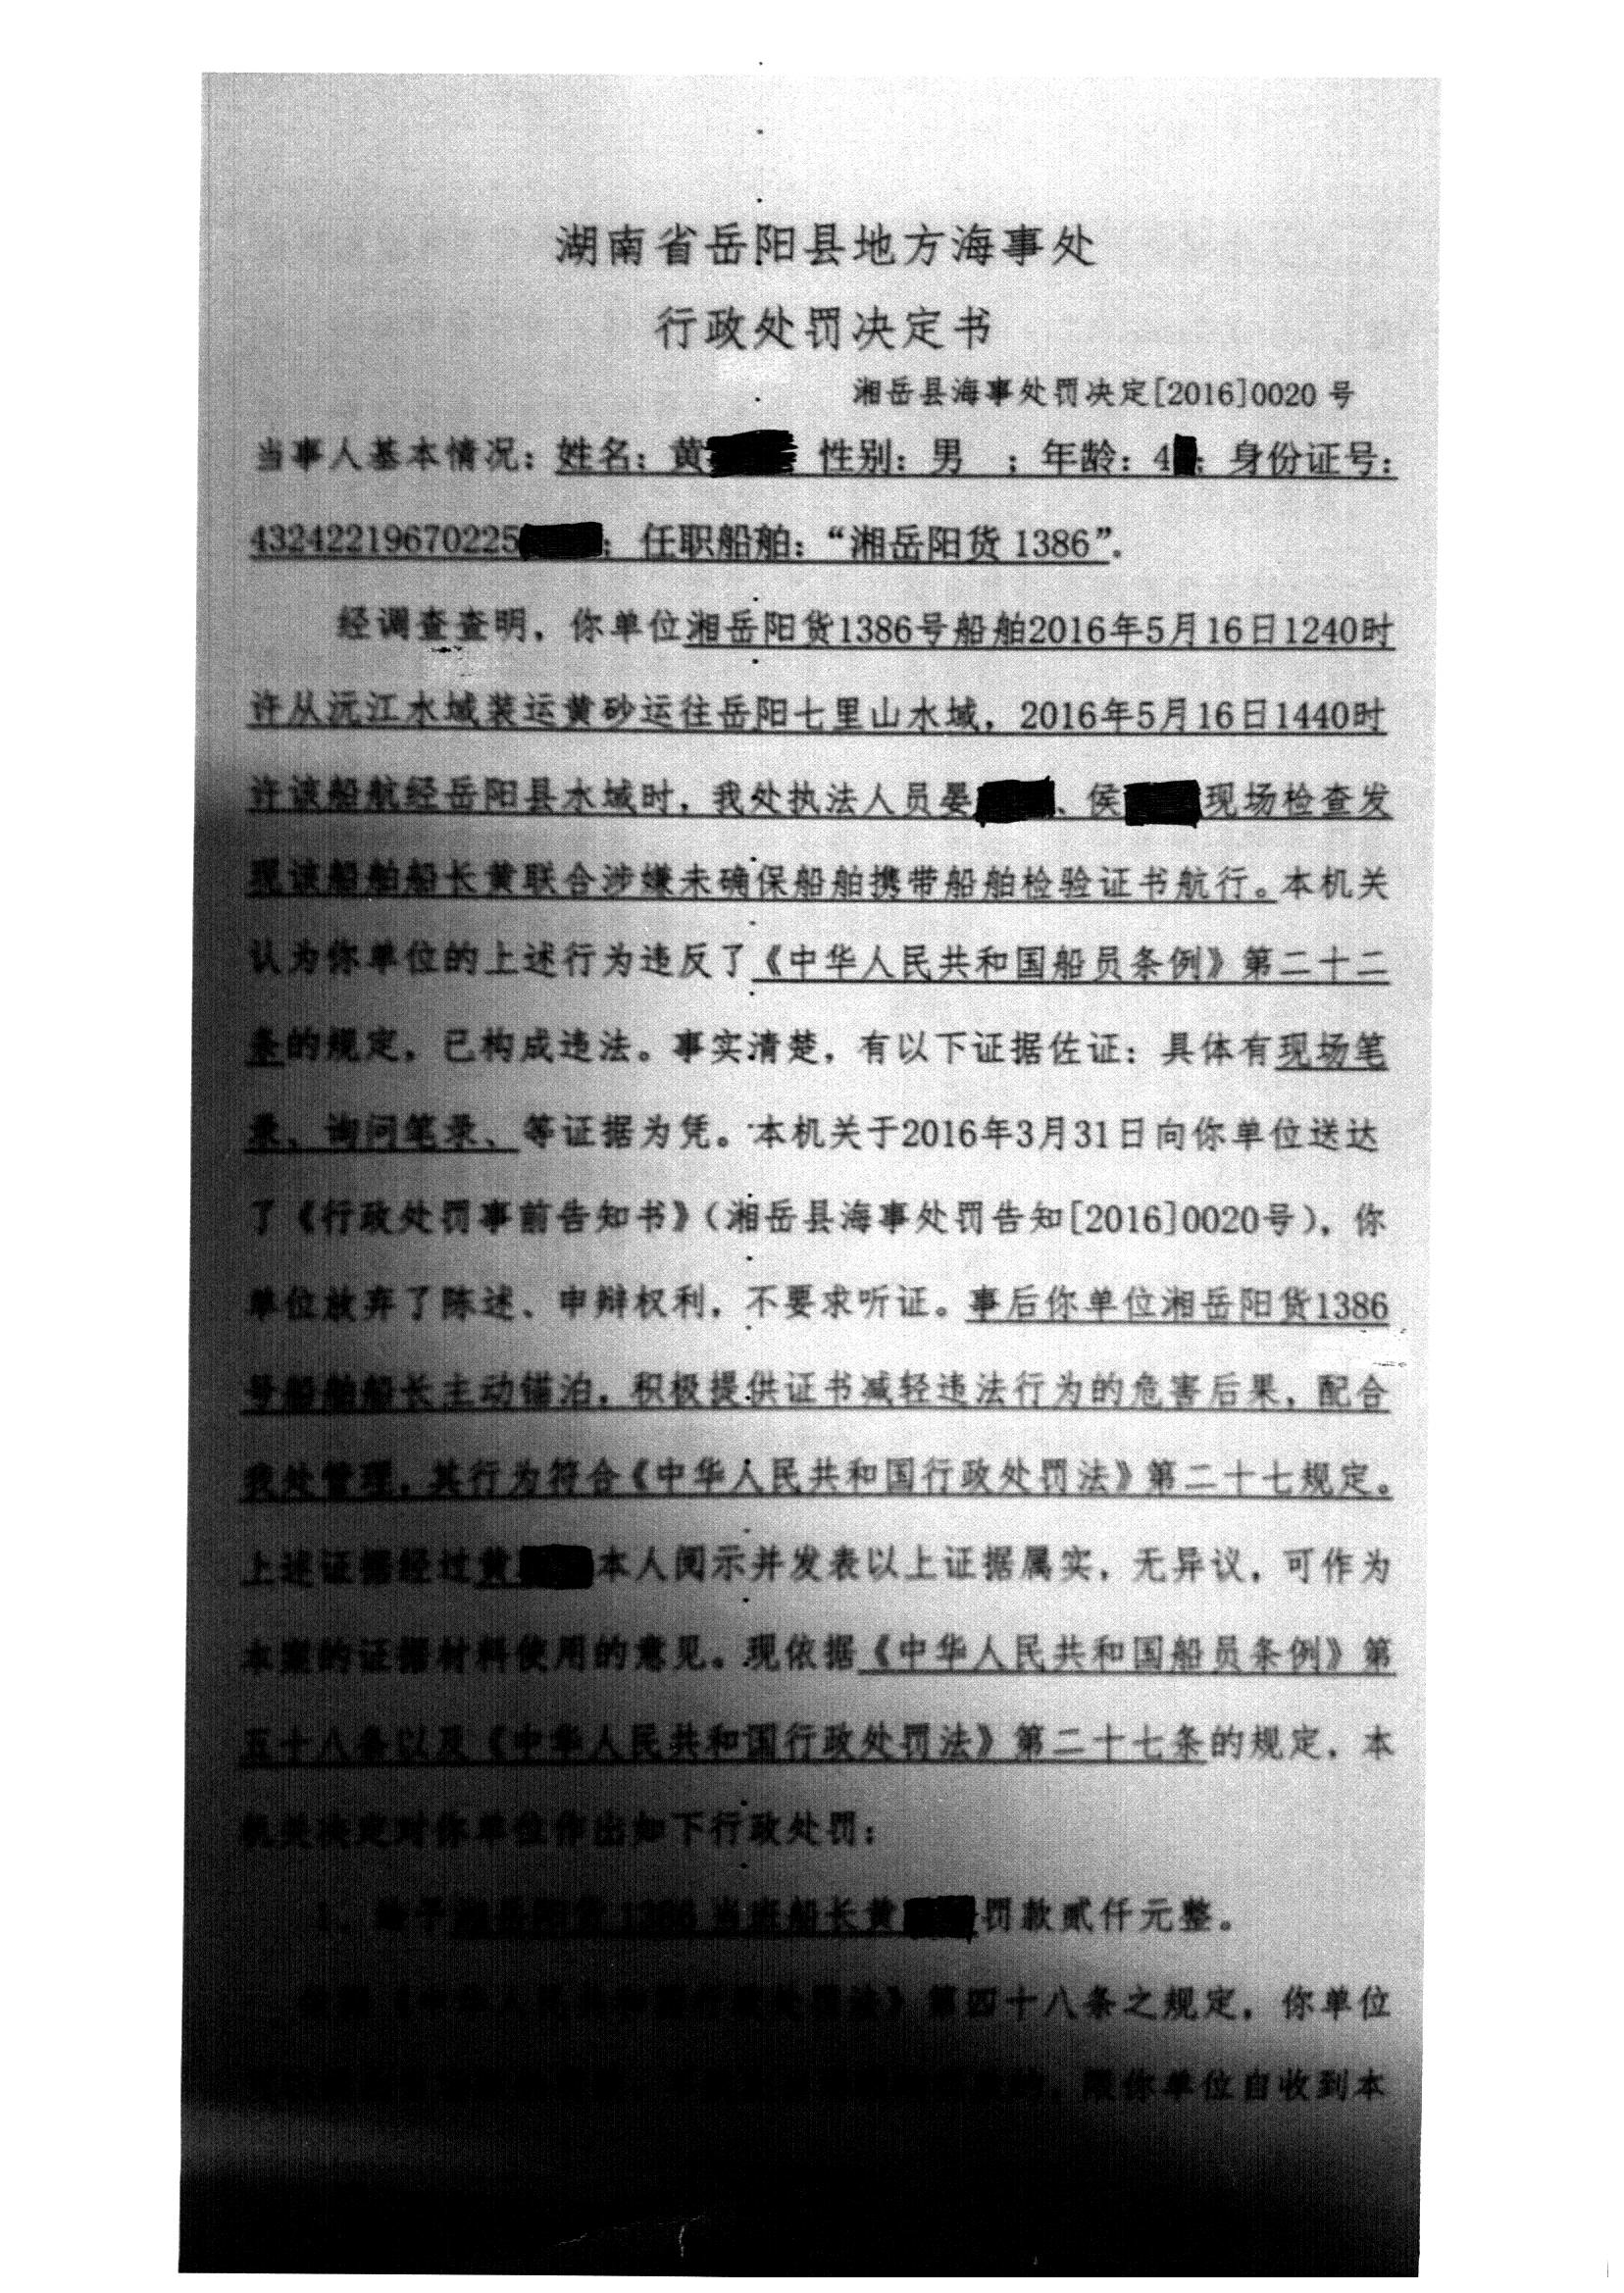 湖南省岳阳县地方海事处
行政处罚决定书
湘岳县海事处罚决定[2016]0020 号
当事人基本情况：姓名：黄 性别：男 ；年龄：4 ；身份证号：
43242219670225 ；任职船舶：“湘岳阳货 1386”．
经调查查明，你单位湘岳阳货1386号船舶2016年5月16日1240时
许从沅江水域装运黄砂运往岳阳七里山水域，2016年5月16日1440时
许该船航经岳阳县水域时，我处执法人员晏 、侯 现场检查发
现该船舶船长黄联合涉嫌未确保船舶携带船舶检验证书航行。本机关
认为你单位的上述行为违反了《中华人民共和国船员条例》第二十二
条的规定，已构成违法。事实清楚，有以下证据佐证：具体有现场笔
录、询问笔录、等证据为凭。本机关于2016年3月31日向你单位送达
了《行政处罚事前告知书》（湘岳县海事处罚告知[2016]0020号），你
单位放弃了陈述、申辩权利，不要求听证。事后你单位湘岳阳货1386
号船舶船长主动锚泊，积极提供证书减轻违法行为的危害后果，配合
我处管理，其行为符合《中华人民共和国行政处罚法》第二十七规定。
上述证据经过黄 本人阅示并发表以上证据属实，无异议，可作为
本案的证据材料使用的意见。现依据《中华人民共和国船员条例》第
五十八条以及《中华人民共和国行政处罚法》第二十七条的规定，本
机关决定对你单位作出如下行政处罚：
1、给予湘岳阳货 1386 当班船长黄 罚款贰仟元整。
《中华人民共和国行政处罚法》第四十八条之规定，你单位
限你单位自收到本